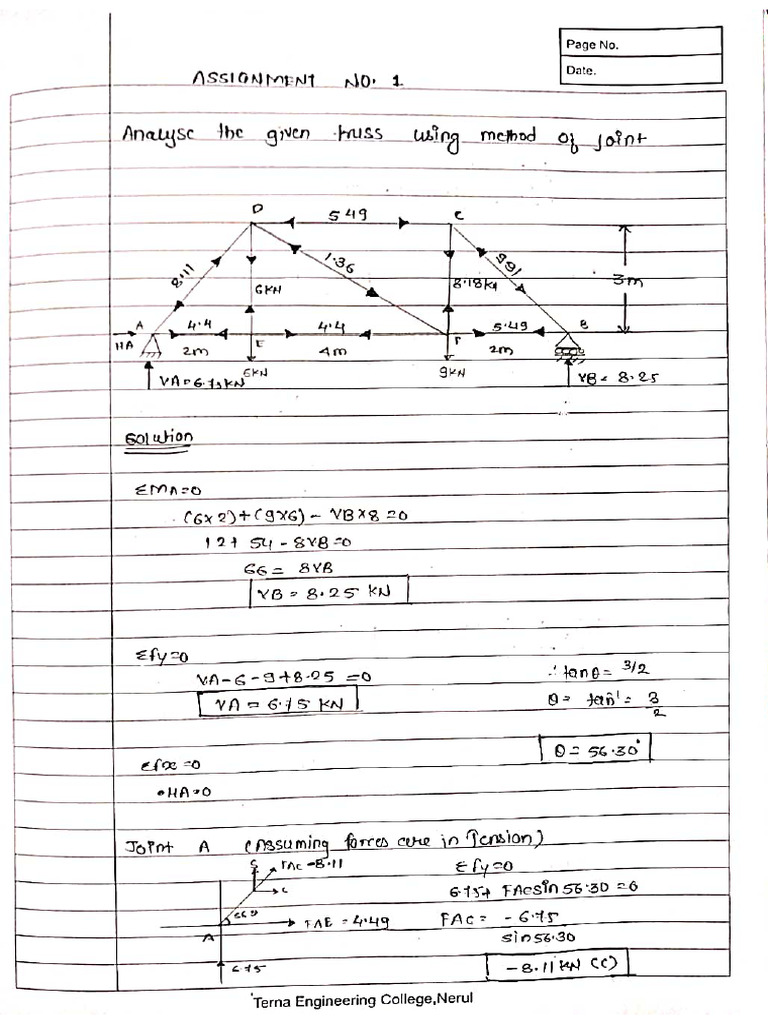 Page No.
Date.
ASSIGNMENT NO. 1
Analyse the given truss using method of joint
D 5.49 C
8.11 1.36 9.91
6KN 8.18KN 3m
A 4.4 E 4.4 F 5.49 B
HA 2m 4m 2m
VA=6.75KN 6KN 9KN VB = 8.25
Solution
ΣMA=0
(6x2)+(9x6) - VBx8=0
12+ 54 - 8VB=0
66= 8VB
VB = 8.25 KN
Σfy=0
VA-6-9+8.25 =0
∴ tanθ= 3/2
VA = 6.75 KN
θ= tan⁻¹ = 3/2
θ= 56.30°
Σfx =0
•HA=0
Joint A (Assuming forces are in Tension)
FAC -8.11
Σfy=0
6.75+ FAC sin 56.30 =0
FAE = 4.49
FAC = - 6.75
A
sin 56.30
6.75
-8.11 KN (C)
Terna Engineering College,Nerul